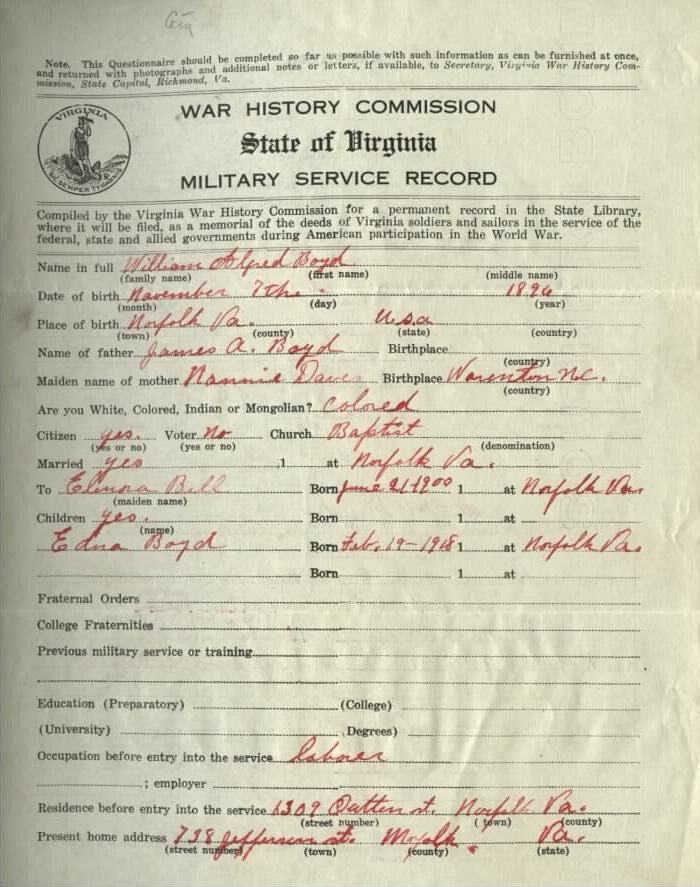 City
Note. This Questionnaire should be completed so far as possible with such information as can be furnished at once,
and returned with photographs and additional notes or letters, if available, to Secretary, Virginia War History Com-
mission, State Capitol, Richmond, Va.
VIRGINIA
SIC SEMPER TYRANNIS
WAR HISTORY COMMISSION
State of Virginia
MILITARY SERVICE RECORD
Compiled by the Virginia War History Commission for a permanent record in the State Library,
where it will be filed, as a memorial of the deeds of Virginia soldiers and sailors in the service of the
federal, state and allied governments during American participation in the World War.
Name in full William Alfred Boyd
(family name) (first name) (middle name)
Date of birth November 7th. 1896
(month) (day) (year)
Place of birth Norfolk Va. U.S.a
(town) (county) (state) (country)
Name of father James A. Boyd Birthplace
(country)
Maiden name of mother Nannie Davis Birthplace Warenton N.C.
(country)
Are you White, Colored, Indian or Mongolian? Colored
Citizen yes. Voter No Church Baptist
(yes or no) (yes or no) (denomination)
Married yes ,1 at Norfolk Va.
To Elinora Bell Born June 21-1900 1 at Norfolk Va
(maiden name)
Children yes. Born 1 at
(name)
Edna Boyd Born Feb. 19-1918 1 at Norfolk Va.
Born 1 at
Fraternal Orders
College Fraternities
Previous military service or training
Education (Preparatory) (College)
(University) (Degrees)
Occupation before entry into the service Laborer
; employer
Residence before entry into the service 6309 st. Norfolk Va.
(street number) (town) (county)
Present home address 738 Jefferson st. Norfolk. Va.
(street number) (town) (county) (state)